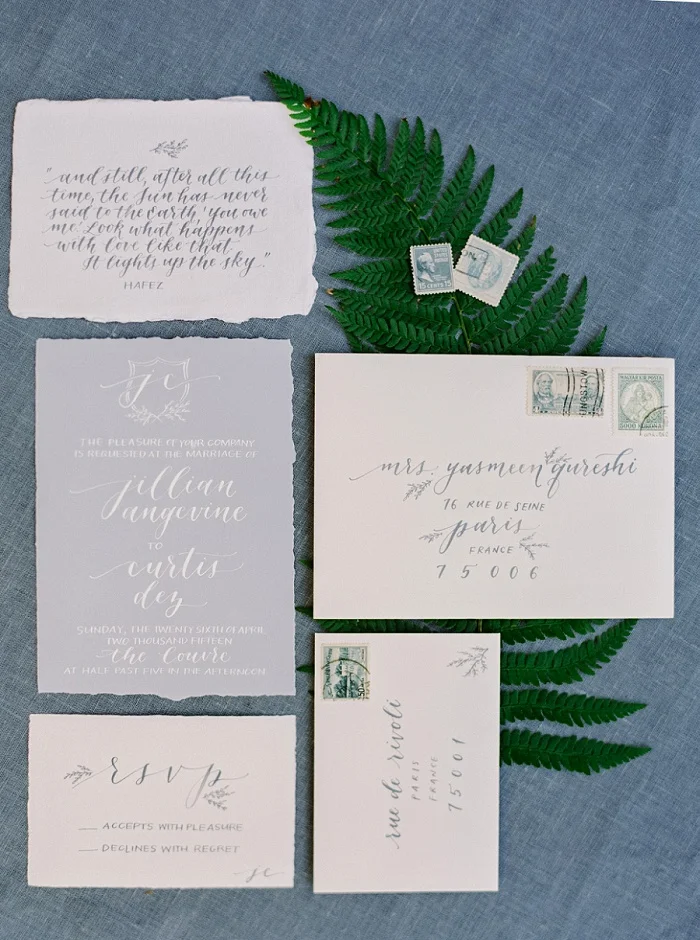 "and still, after all this
time, the Sun has never
said to the Earth, 'you owe
me.' Look what happens
with love like that.
It lights up the sky."
HAFEZ
UNITED STATES POSTAGE
15 CENTS 15
jc
THE PLEASURE OF YOUR COMPANY
IS REQUESTED AT THE MARRIAGE OF
jillian
angevine
TO
curtis
dez
SUNDAY, THE TWENTY SIXTH OF APRIL
TWO THOUSAND FIFTEEN
the Louvre
AT HALF PAST FIVE IN THE AFTERNOON
rsvp
ACCEPTS WITH PLEASURE
DECLINES WITH REGRET
jc
NGSTOW
MAGYAR KIR. POSTA
5000 KORONA
mrs. yasmeen qureshi
76 RUE DE SEINE
paris
FRANCE
75006
rue de rivoli
PARIS
FRANCE
75001